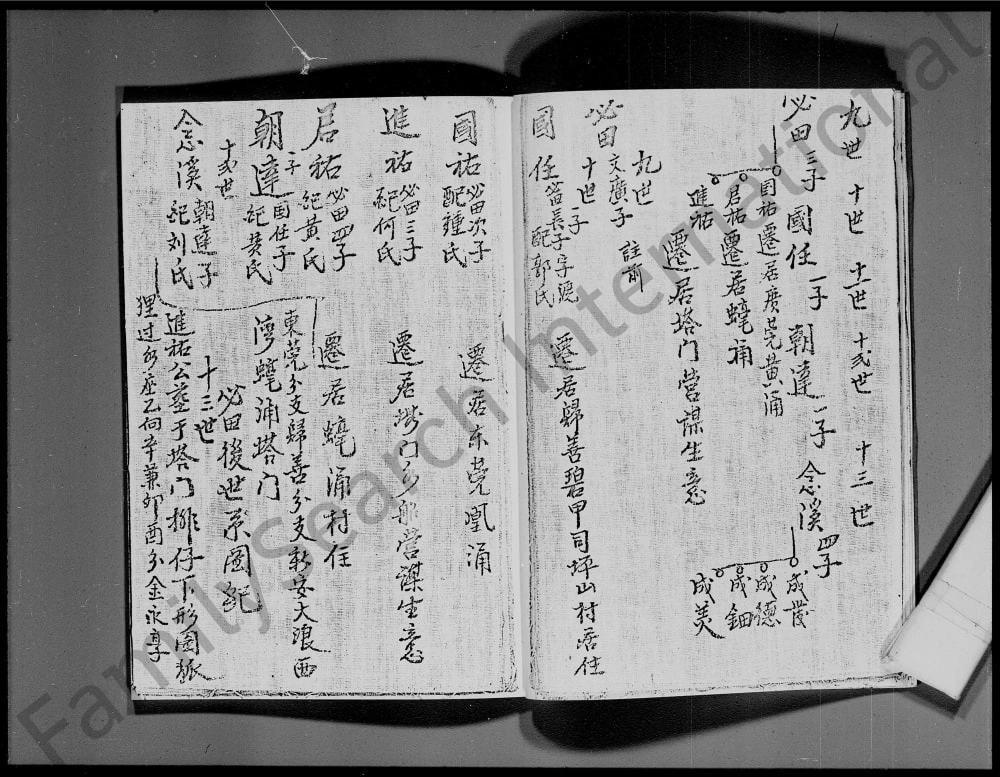 九世 十世 十一世 十弍世 十三世
必田 三子 國任 一子 朝達 一子 念溪 四子
國祐 遷居廣莞黄涌
君祐 遷居蠔涌
進祐 遷居塔门營謀生意
成茂
成德
成鈿
成美
九世
必田 文廣子 註前
十世
國任 長子 字 配郭氏 遷居歸善碧甲司坪山村居住
國祐 必田次子 配鍾氏 遷居东莞凰涌
進祐 必田三子 紀何氏 遷居塔门 營謀生意
君祐 必田四子 紀黄氏 遷居蠔涌村住
朝達 子 国任子 紀黄氏
東莞分支歸善分支新安大浪西
灣蠔涌塔门
十弍世
念溪 朝達子 紀刘氏
十三世
必田後世系圖紀
進祐公塟于塔门排仔下形图狐
狸过 座乙向辛兼卯酉分金永享
FamilySearch International